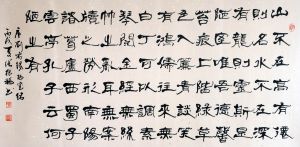 山不在高有仙
則名水不在深
有龍則靈斯是
陋室惟吾德馨
苔痕上階綠草
色入簾青談笑
有鴻儒往來無
白丁可以調素
琴閱金經無絲
竹之亂耳無案
牘之勞形南陽
諸葛廬西蜀子
雲亭孔子云何
陋之有
唐劉禹錫陋室銘
丙戌夏